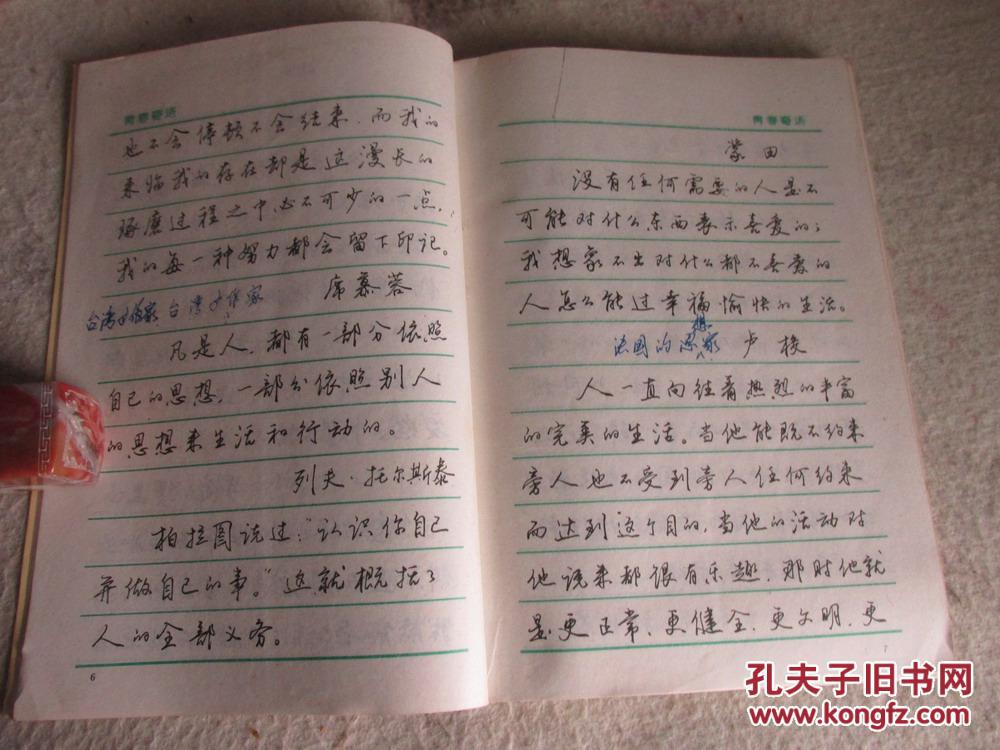 青春寄语
也不会停顿不会结束.而我的
来临我的存在却是这漫长的
琢磨过程之中必不可少的一点,
我的每一种努力都会留下印记。
席慕蓉
台湾女作家 台湾女作家
凡是人,都有一部分依照
自己的思想,一部分依照别人
的思想来生活和行动的。
列夫·托尔斯泰
柏拉图说过:“认识你自己
并做自己的事。”这就概括了
人的全部义务。
6
青春寄语
蒙田
没有任何需要的人是不
可能对什么东西表示喜爱的;
我想象不出对什么都不喜爱的
人怎么能过幸福愉快的生活。
法国的思想家 卢梭
人一直向往着热烈的丰富
的完美的生活。当他能既不约束
旁人也不受到旁人任何约束
而达到这个目的,当他的活动对
他说来都很有乐趣,那时他就
是更正常、更健全、更文明、更
7
孔夫子旧书网
www.kongfz.com